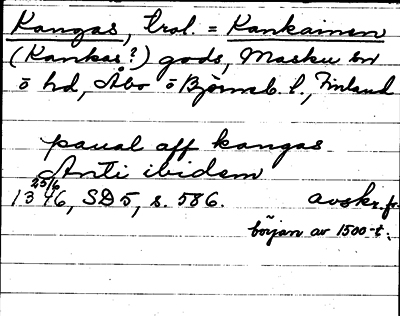 Kangas, trol. = Kankainen
(Kankas?) gods, Masku sn
ö hd, Åbo o Björneb. l., Finland
paual aff kangas
Anti ibidem
25/6
1346, SD 5, s. 586. avskr. fr.
början av 1500-t.